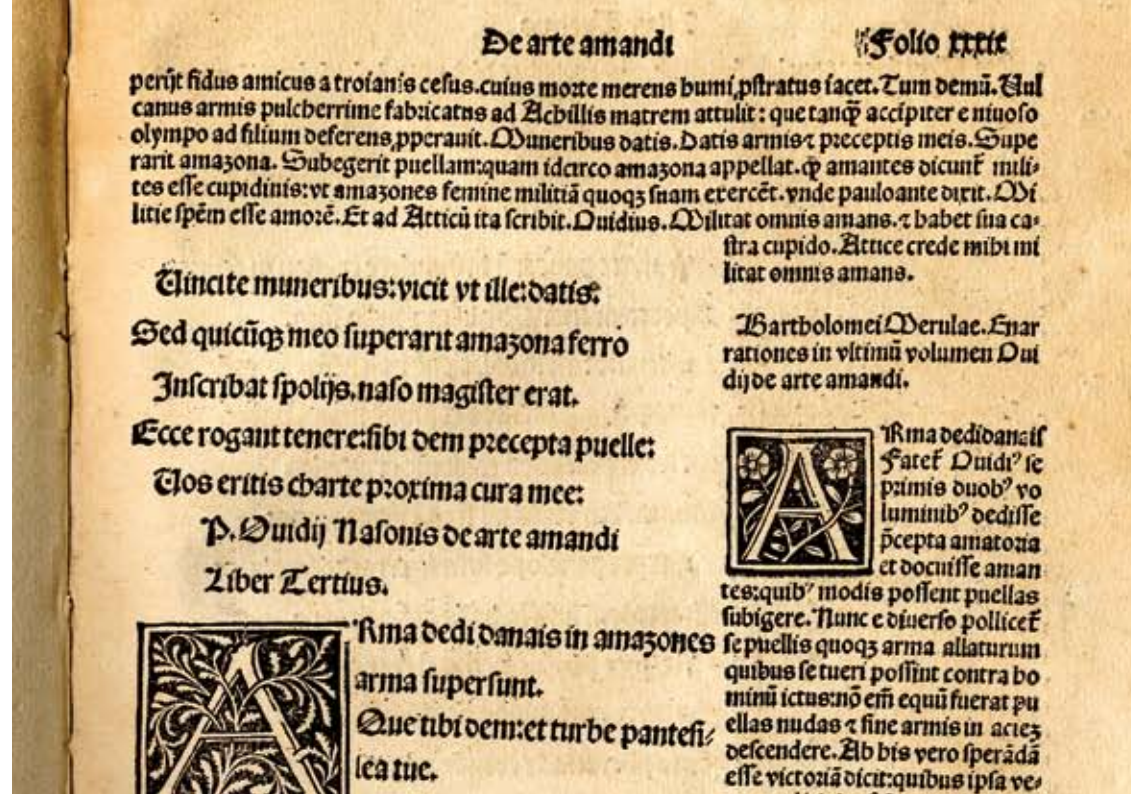 De arte amandi
Folio xxxix
perijt fidus amicus a troianis cesus.cuius morte merens humi ꝓstratus iacet.Tum demũ.Uul
canus armis pulcherrime fabricatus ad Achillis matrem attulit: que tanqȝ accipiter e niuoso
olympo ad filium deferens ꝓperauit.Muneribus datis.Datis armis ⁊ preceptis meis.Supe
rarit amazona. Subegerit puellam:quam idcirco amazona appellat.qꝫ amantes dicunt᷑ mili-
tes esse cupidinis:vt amazones femine militiã quoqȝ suam exercẽt.vnde pauloante dixit.Mi
litie spẽm esse amorẽ.Et ad Atticũ ita scribit.Ouidius.Militat omnis amans.⁊ habet sua ca-
stra cupido.Attice crede mihi mi
litat omnis amans.
Uincite muneribus:vicit vt ille:datis:
Sed quicũqȝ meo superarit amazona ferro
Inscribat spolijs.naso magister erat.
Ecce rogant tenere:sibi dem precepta puelle:
Uos eritis charte proxima cura mee:
P.Ouidij Nasonis de arte amandi
Liber Tertius.
ARma dedi danais in amazones
arma supersunt.
Que tibi dem:et turbe pantesi-
lea tue.
Bartholomei Merulae.Enar
rationes in vltimũ volumen Oui
dij de arte amandi.
ARma dedi danais
Fatet᷑ Ouidiꝰ se
primis duobꝰ vo
luminibꝰ dedisse
p̃cepta amatoria
et docuisse aman
tes:quibꝰ modis possent puellas
subigere.Nunc e diuerso pollicet᷑
se puellis quoqȝ arma allaturum
quibus se tueri possint contra ho
minũ ictus:nõ em̃ equũ fuerat pu
ellas nudas ⁊ sine armis in acieȝ
descendere.Ab his vero sperãdã
esse victoriã dicit:quibus ipsa ve-